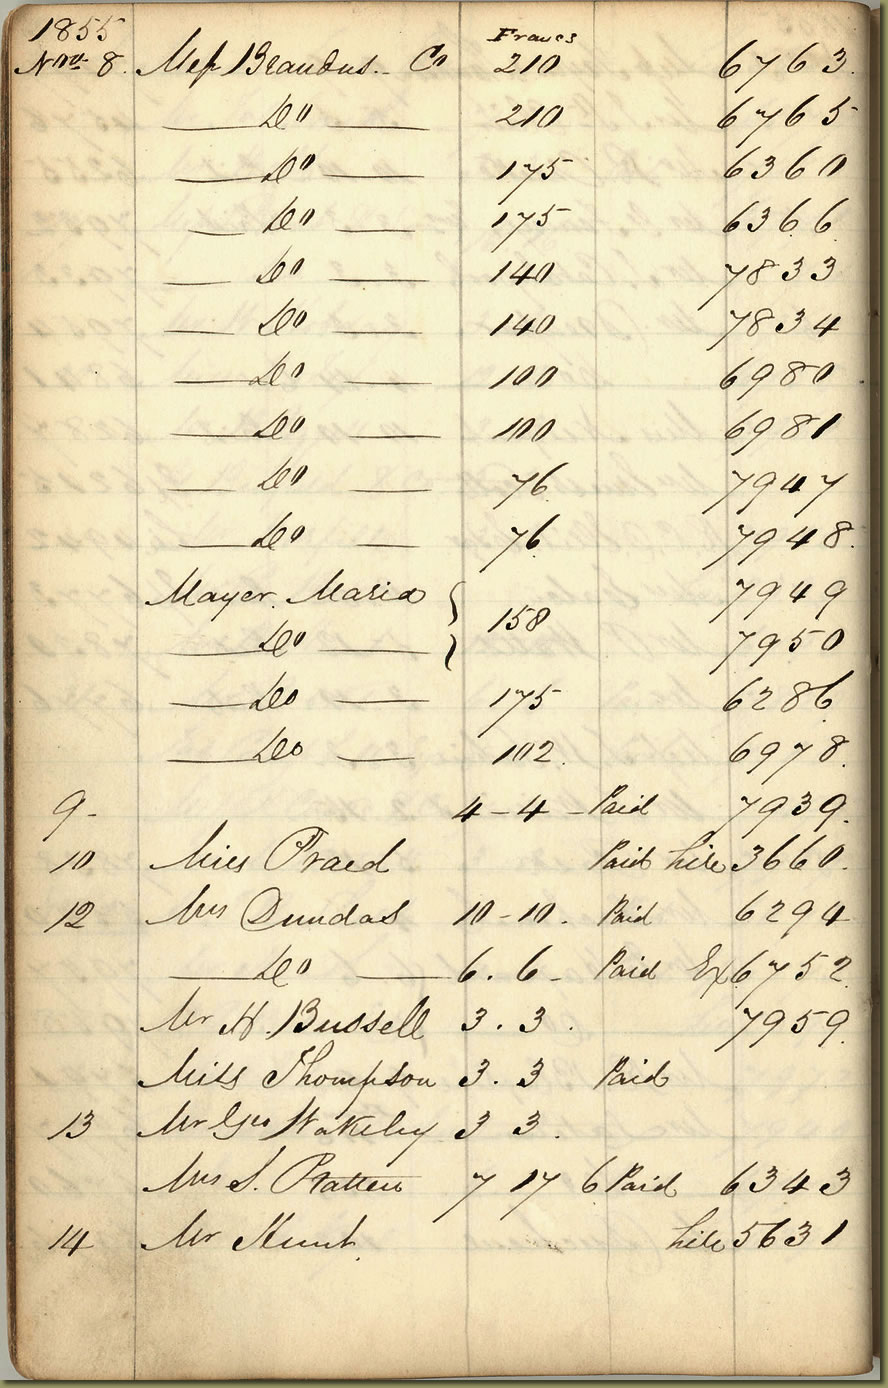 1855 Francs
Novr 8. Mess Brandus. Co 210 6763.
Do 210 6765
Do 175 6360
Do 175 6366
Do 140 7833
Do 140 7834
Do 100 6980
Do 100 6981
Do 76 7947
Do 76 7948.
Mayer. Maria } 158 7949
Do 7950
Do 175 6286
Do 102. 6978.
9- 4-4- Paid 7939.
10 Miss Praed Paid hire 3660.
12 Mrs Dundas 10-10. Paid 6294
Do 6. 6- Paid Ex 6752.
Mr H. Bussell 3. 3. 7959.
Miss Thompson 3. 3 Paid
13 Mr Geo Wakeley 3 3.
Mrs S. Pratten 7 17 6 Paid 6343
14 Mr Hunt. hire 5631